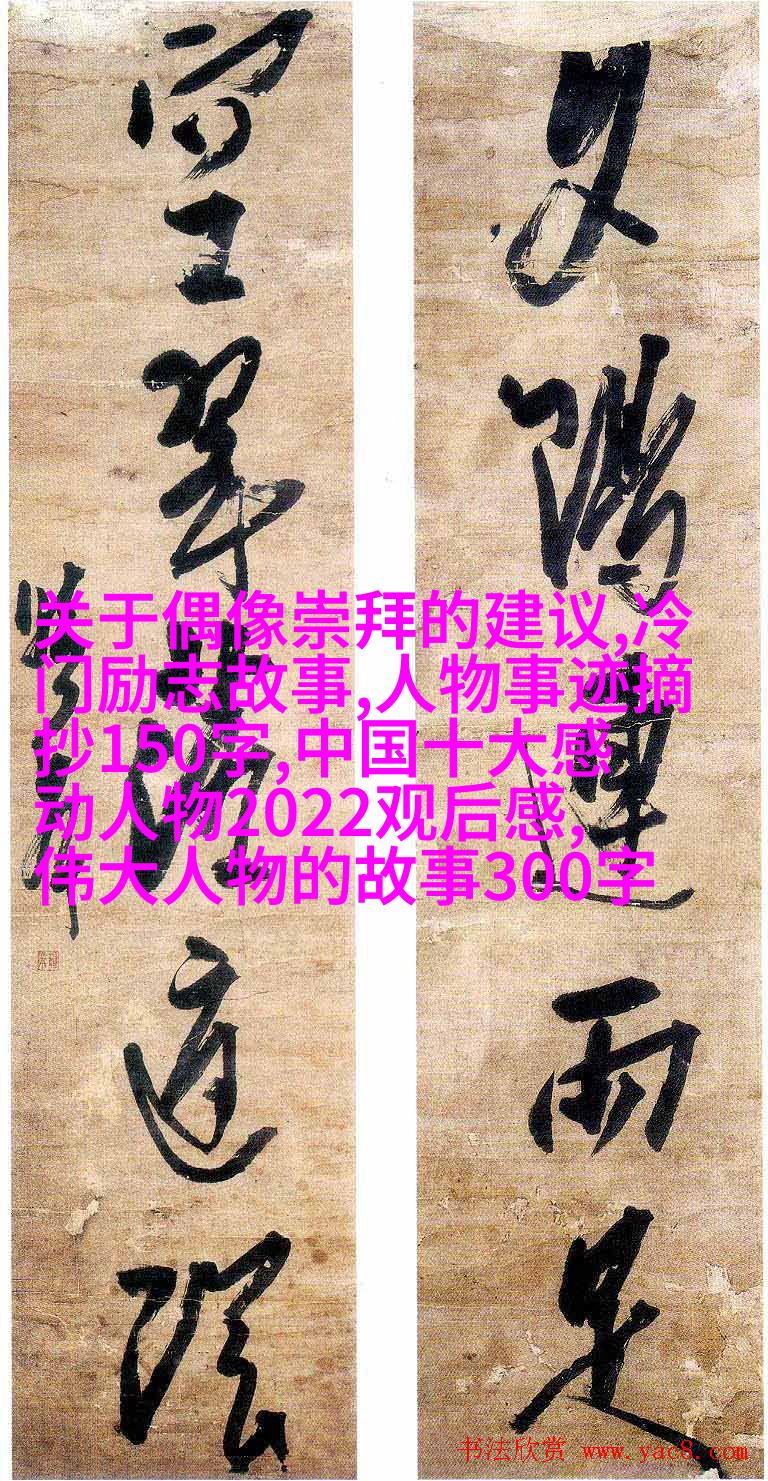 夕陽連雨足
空翠落庭陰
关于偶像崇拜的建议,冷
门励志故事,人物事迹摘
抄150字,中国十大感
动人物2022观后感,
伟大人物的故事300字
书法欣赏 www.yac8.com